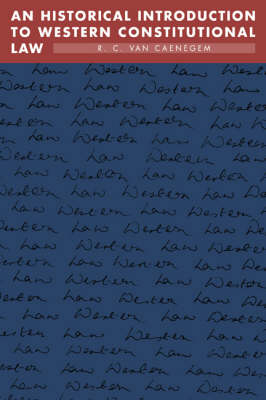 AN HISTORICAL INTRODUCTION
TO WESTERN CONSTITUTIONAL
LAW
R. C. VAN CAENEGEM
Law Western Law Western
Western Law Western
Law Western Law
Western Law Western
Law Western Law
Western Law Western
Law Western Law
Western Law Western
Law Western Law Western
Western Law Western Law
Law Western Law
Western Law Western
Law Western Law
Western Law Western
Law Western Law
Western Law Western
Law Western Law
Western Law Western
Law Western Law Western